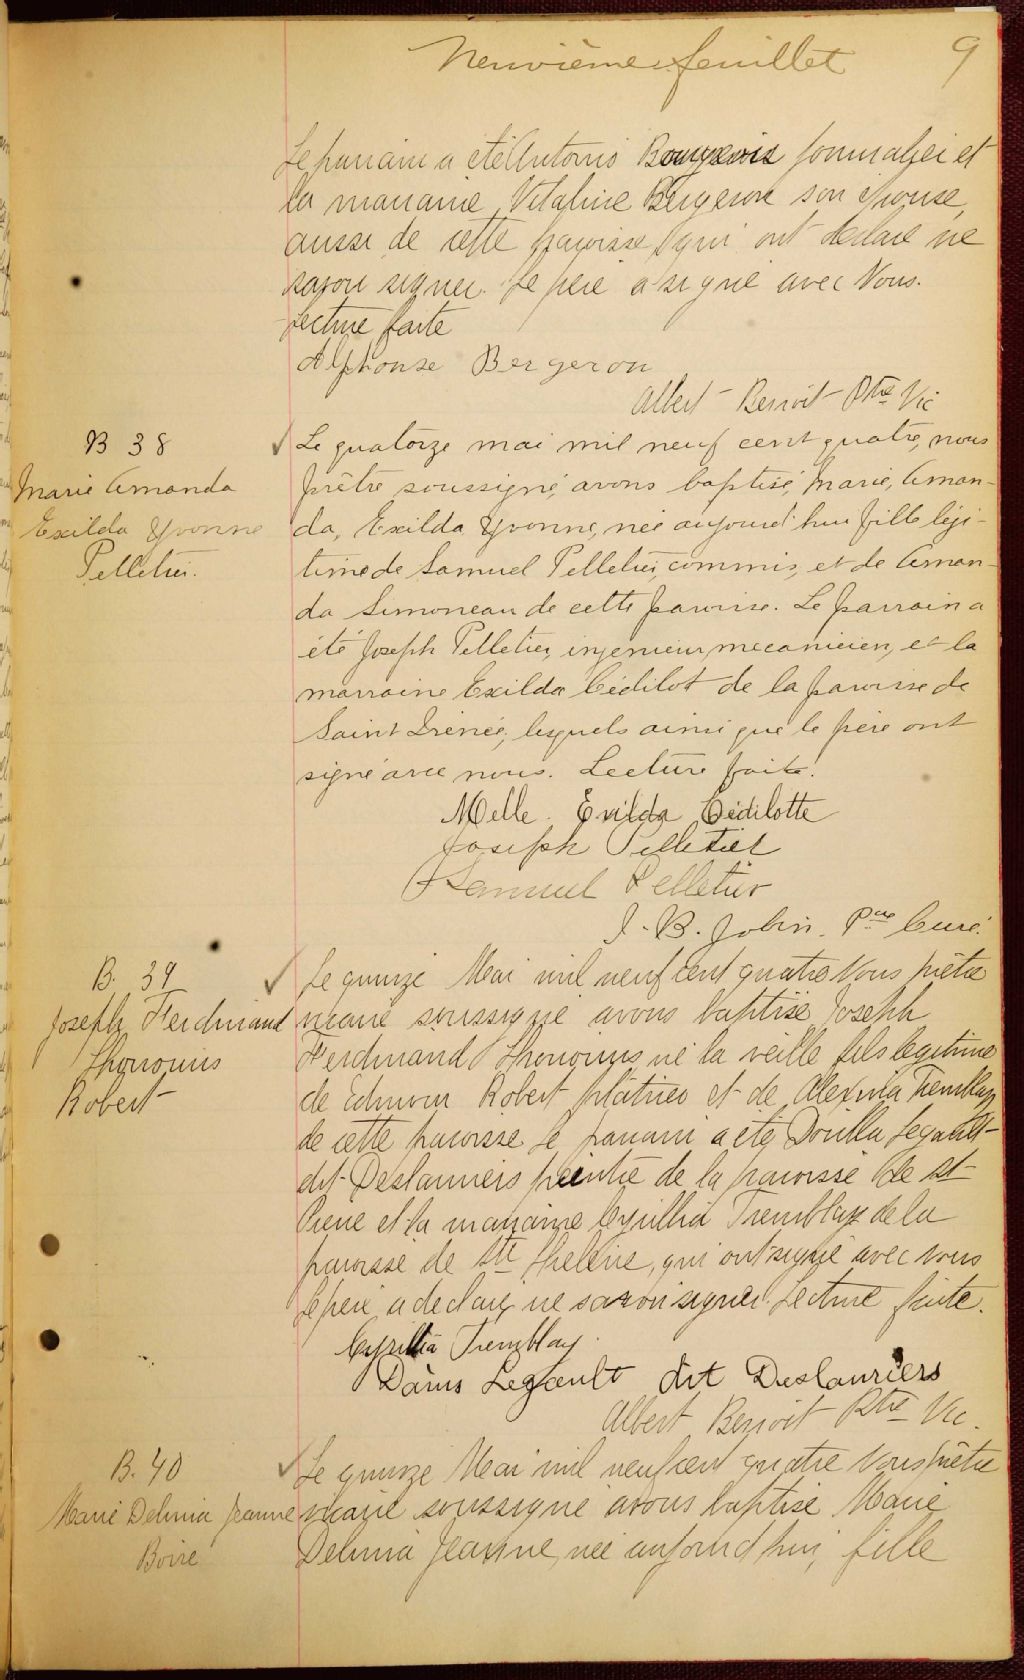 Neuvième feuillet
9
Le parrain a été Antonis Bourgeois journalier et
la marraine Vitaline Bergeron son épouse,
aussi de cette paroisse qui ont déclaré ne
savoir signer. Le père a signé avec Nous.
Lecture faite
Alphonse Bergeron
Albert Benoit Ptre Vic
B 38
Marie Amanda
Exilda Yvonne
Pelletier.
Le quatorze mai mil neuf cent quatre, nous
prêtre soussigné, avons baptisé, Marie, Aman-
da, Exilda Yvonne, née aujourd'hui fille légi-
time de Samuel Pelletier, commis, et de Aman-
da Simoneau de cette paroisse. Le parrain a
été Joseph Pelletier, ingenieur mecanicien, et la
marraine Exilda Cédilot de la paroisse de
Saint Irénée, lesquels ainsi que le père ont
signé avec nous. Lecture faite.
Melle. Exilda Cédilotte
Joseph Pelletier
Samuel Pelletier
J. B. Jobin. Ptre Curé.
B. 39
Joseph Ferdinand
Robert
Le quinze Mai mil neuf cent quatre Nous prêtre
vicaire soussigné avons baptisé Joseph
Ferdinand né la veille fils legitime
de Robert plâtrier et de Alexina Tremblay
de cette paroisse Le parrain a été Legault
dit Deslauriers peintre de la paroisse de St
Pierre et la marraine Cyrillia Tremblay de la
paroisse de Ste Hélène, qui ont signé avec nous
Le père a déclaré ne savoir signer. Lecture faite.
Cyrillia Tremblay
Legault dit Deslauriers
Albert Benoit Ptre Vic.
B. 40
Marie Delima Jeanne
Boire
Le quinze Mai mil neuf cent quatre Nous prêtre
vicaire soussigné avons baptisé Marie
Delima Jeanne, née aujourd'hui, fille